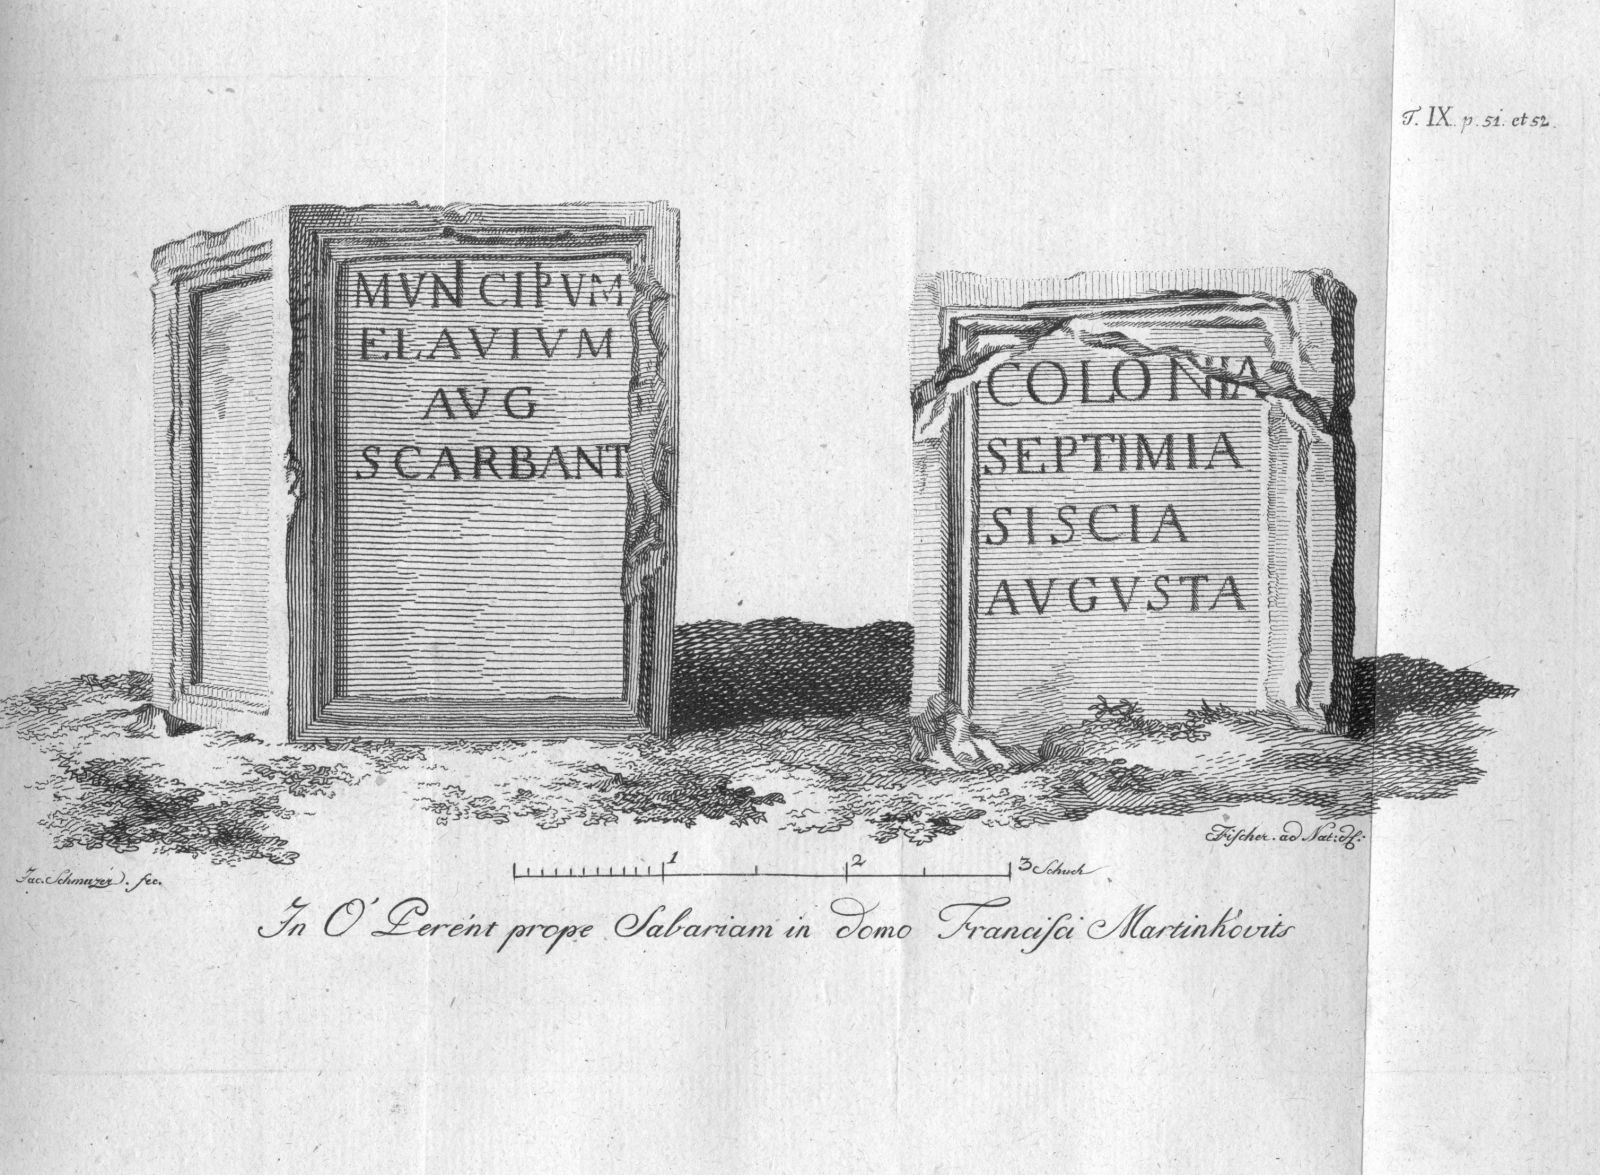 T. IX. p. 51. et 52.
MVNCIPVM
ELAVIVM
AVG
SCARBANT
COLONIA
SEPTIMIA
SISCIA
AVGVSTA
Fischer. ad Nat: df:
Jac. Schmuzer. fec.
1 2 3 Schuch
In O' Perént prope Sabariam in domo Francisci Martinkovits